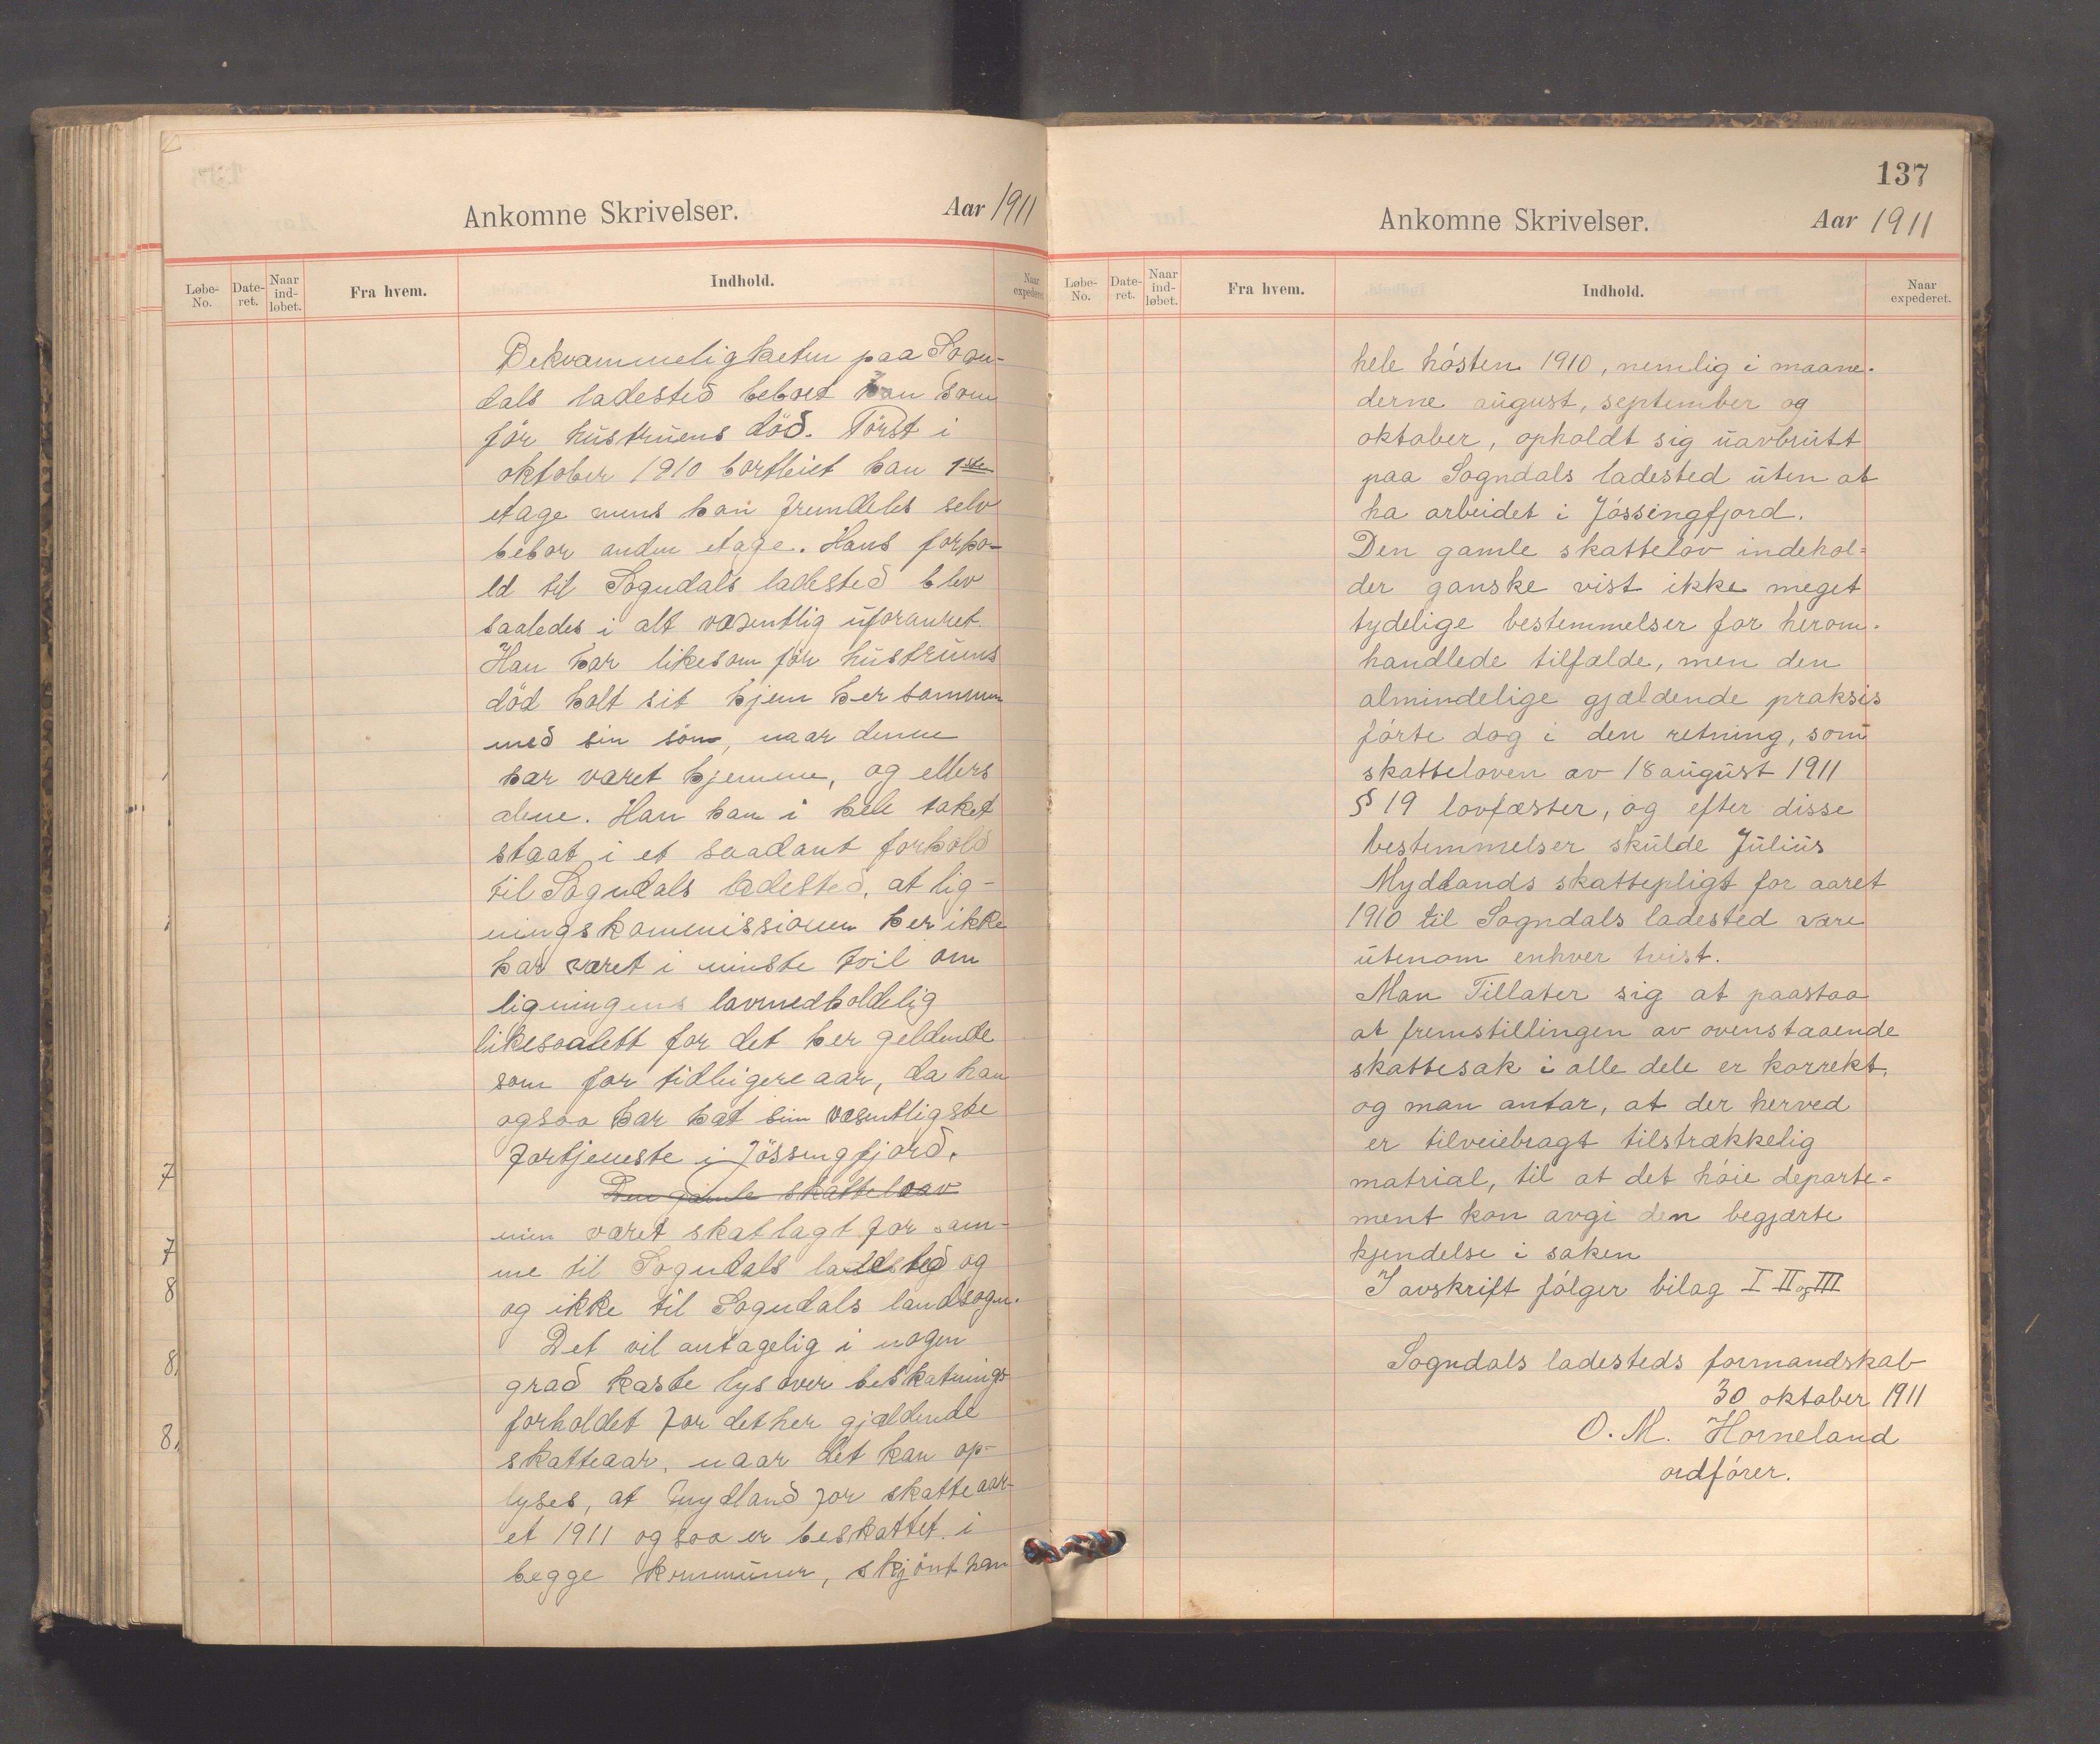 Ankomne Skrivelser.
Aar 1911
Løbe-No.
Date-ret.
Naar ind-løbet.
Fra hvem.
Indhold.
Naar expederet
Bekvæmmeligheten paa Sogn-
dals ladested beboet han som
før hustruens død. Først i
oktober 1910 bortleiet han 1ste
etage mens han fremdeles selv
bebor anden etage. Hans forho-
ld til Sogndals ladested blev
saaledes i alt væsentlig uforanret.
Han har likesom før hustruens
död holt sit hjem her sammen
med sin sön, naar denne
har været hjemme, og ellers
alene. Han han i hele taket
staat i et saadant forhold
til Sogndals ladested, at lig-
ningskommissionen her ikke
har været i minste tvil om
ligningens lovmedholdelig
likesaalett for det her geldende
som for tidligere aar, da han
ogsaa har hat sin væsentligste
fortjeneste i Jössingfjord.
Den gamle skatteloav
min været skatlagt for sam-
me til Sogndals ladested og
og ikke til Sogndals landsogn.
Det vil antagelig i nogen
grad kaste lys over beskatnings
forholdet for det her gjældende
skatteaar, naar det kan op-
lyses, at Mydland for skatteaar-
et 1911 ogsaa er beskattet i
begge kommuner, skjönt han
7
7
8
8,
8,
137
Ankomne Skrivelser.
Aar 1911
Løbe-No.
Date-ret.
Naar ind-løbet.
Fra hvem.
Indhold.
Naar expederet.
hele hósten 1910, nemlig i maane-
derne august, september og
oktober, opholdt sig uavbrutt
paa Sogndals ladested uten at
ha arbeidet i Jóssingfjord.
Den gamle skattelov indehol=
der ganske vist ikke meget
tydelige bestemmelser for herom-
handlede tilfælde, men den
almindelige gjældende praksis
fórte dog i den retning, som
skatteloven av 18 august 1911
§ 19 lovfæster, og efter disse
bestemmelser skulde Julius
Mydlands skattepligt for aaret
1910 til Sogndals ladested være
utenom enhver tvist.
Man Tillater sig at paastaa
at fremstillingen av ovenstaaende
skattesak i alle dele er korrekt,
og man antar, at der herved
er tilveiebragt tilstrækkelig
matrial, til at det hóie departe=
ment kan avgi den begjærte
kjendelse i saken
I avskrift fólger bilag I II og III
Sogndals ladesteds formandskab
30 oktober 1911
O. M. Horneland
ordfórer.